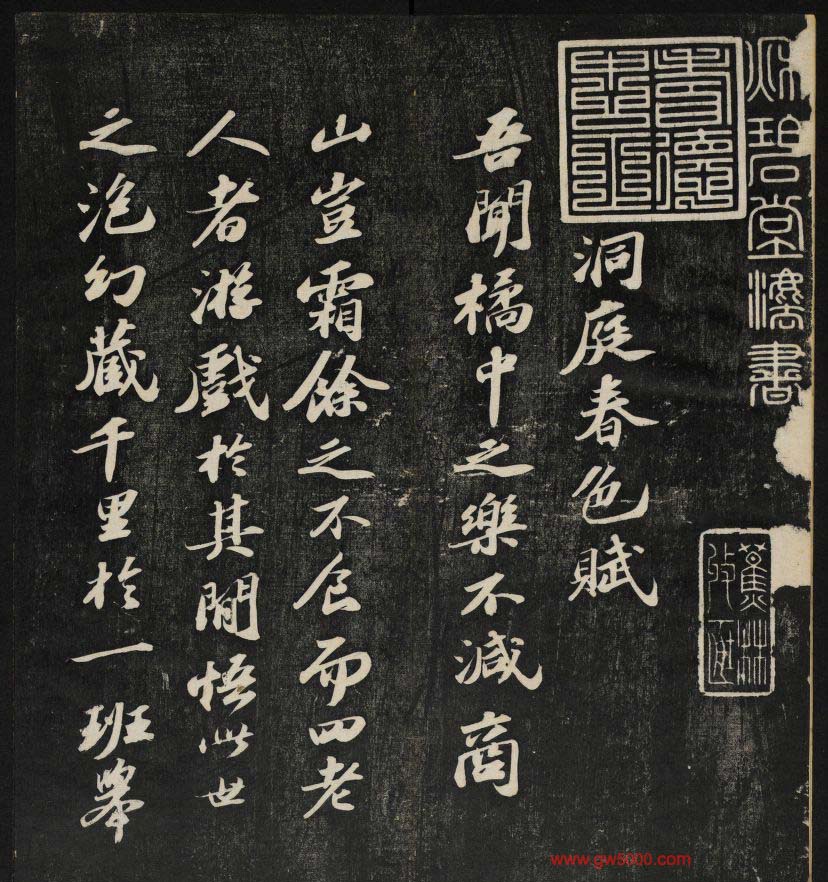 秋碧堂法書
蕉林
洞庭春色賦
吾聞橘中之樂不減商
山豈霜餘之不食而四老
人者游戲於其間悟此世
之泡幻藏千里於一班舉
www.gw5000.com